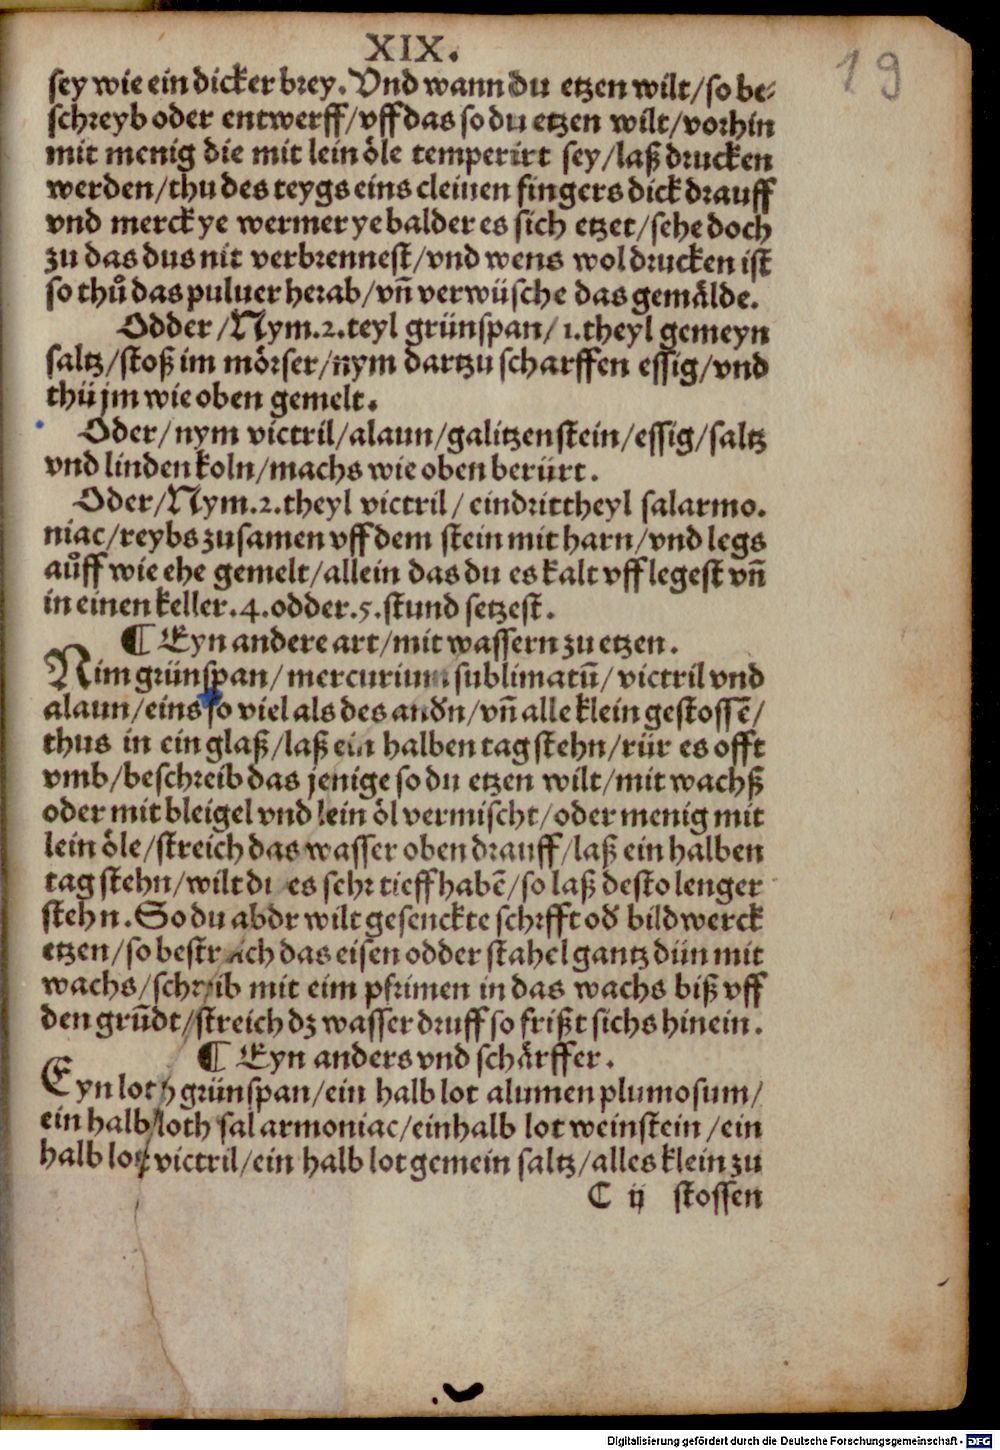 XIX.
19
sey wie ein dicker brey. Vnd wann du etzen wilt/so be⸗
schreyb oder entwerff/vff das so du etzen wilt/vorhin
mit menig die mit lein öle temperirt sey/laß drucken
werden/thu des teygs eins cleinen fingers dick drauff
vnd merck ye wermer ye balder es sich etzet/sehe doch
zu das dus nit verbrennest/vnd wens wol drucken ist
so thů das puluer herab/vn̄ verwüsche das gemälde.
Odder/Nym.2.teyl grünspan/1.theyl gemeyn
saltz/stoß im mörser/nym dartzu scharffen essig/vnd
thü jm wie oben gemelt.
Oder/nym victril/alaun/galitzenstein/essig/saltz
vnd linden koln/machs wie oben berürt.
Oder/Nym.2.theyl victril/ein drittheyl salarmo.
niac/reybs zusamen vff dem stein mit harn/vnd legs
aůff wie ehe gemelt/allein das du es kalt vff legest vn̄
in einen keller.4.odder.5.stund setzest.
¶ Eyn andere art/mit wassern zu etzen.
Nim grünspan/mercurium sublimatū/victril vnd
alaun/eins so viel als des andn/vn̄ alle klein gestossē/
thus in ein glaß/laß ein halben tag stehn/rür es offt
vmb/beschreib das jenige so du etzen wilt/mit wachß
oder mit bleigel vnd lein öl vermischt/oder menig mit
lein öle/streich das wasser oben drauff/laß ein halben
tag stehn/wilt du es sehr tieff habē/so laß desto lenger
stehn. So du abdr wilt gesenckte schrfft od bildwerck
etzen/so bestreich das eisen odder stahel gantz dün mit
wachs/schreib mit eim pfrimen in das wachs biß vff
den grūdt/streich dz wasser druff so frißt sichs hinein.
¶ Eyn anders vnd schärffer.
Eyn loth grünspan/ein halb lot alumen plumosum/
ein halb loth sal armoniac/einhalb lot weinstein/ein
halb lot victril/ein halb lot gemein saltz/alles klein zu
C ij stossen
Digitalisierung gefördert durch die Deutsche Forschungsgemeinschaft - DFG